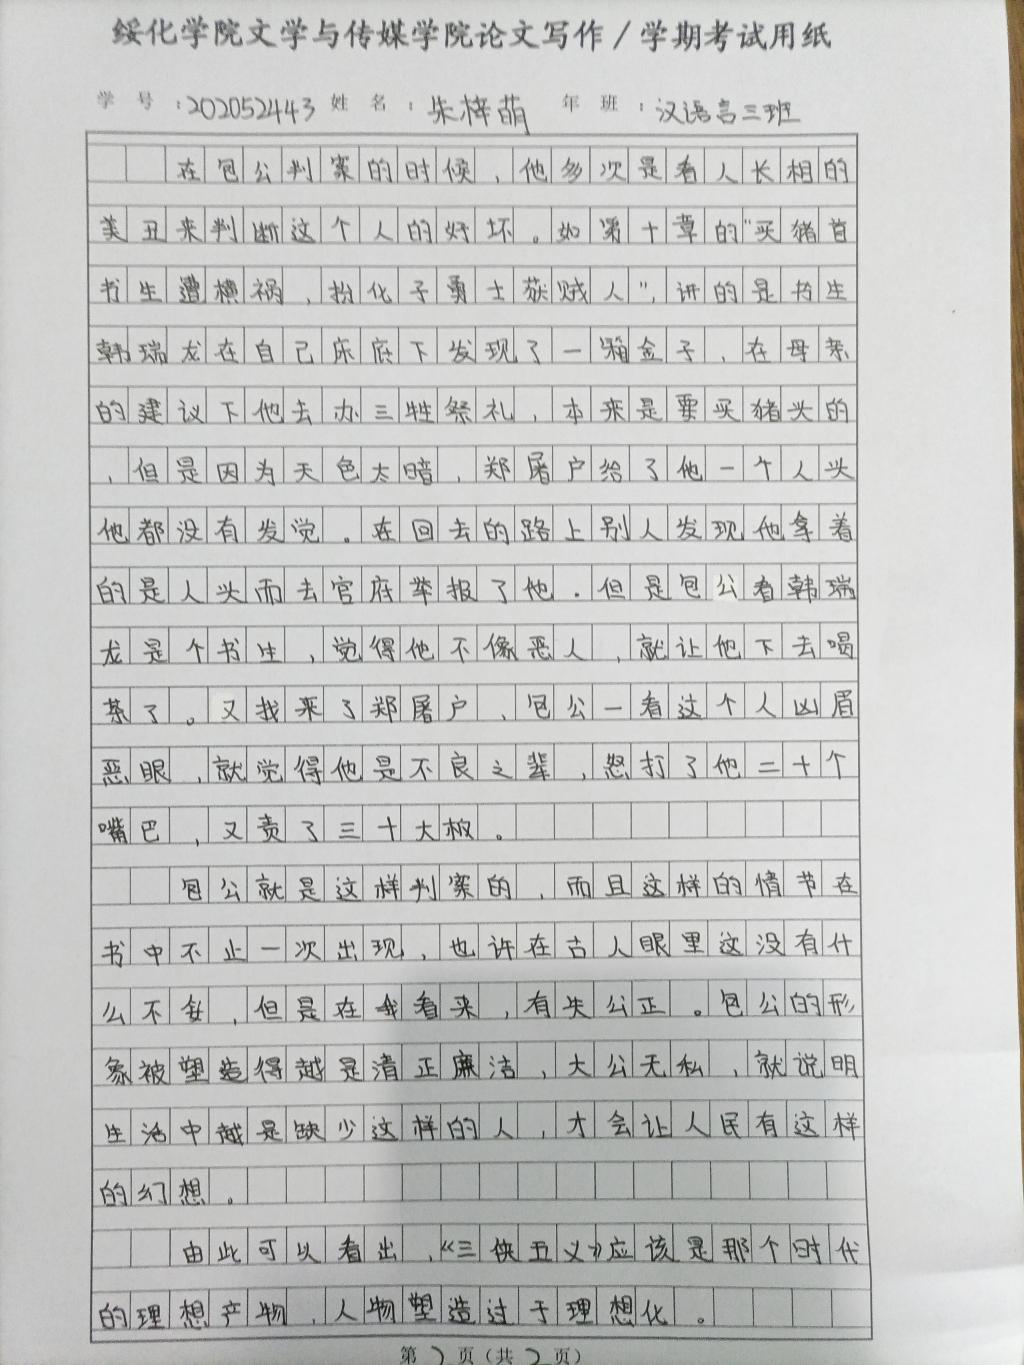 绥化学院文学与传媒学院论文写作/学期考试用纸
学号:202052443 姓名:朱梓萌 年班:汉语言三班
在包公判案的时候,他多次是看人长相的
美丑来判断这个人的好坏。如第十章的“买猪首
书生遭横祸,扮化子勇士获贼人”,讲的是书生
韩瑞龙在自己床底下发现了一箱金子,在母亲
的建议下他去办三牲祭礼,本来是要买猪头的
,但是因为天色太暗,郑屠户给了他一个人头
他都没有发觉。在回去的路上别人发现他拿着
的是人头而去官府举报了他.但是包公看韩瑞
龙是个书生,觉得他不像恶人,就让他下去喝
茶了。又找来了郑屠户,包公一看这个人凶眉
恶眼,就觉得他是不良之辈,怒打了他二十个
嘴巴,又责了三十大板。
包公就是这样判案的,而且这样的情节在
书中不止一次出现,也许在古人眼里这没有什
么不妥,但是在我看来,有失公正。包公的形
象被塑造得越是清正廉洁,大公无私,就说明
生活中越是缺少这样的人,才会让人民有这样
的幻想。
由此可以看出,《三侠五义》应该是那个时代
的理想产物,人物塑造过于理想化。
第2页(共2页)